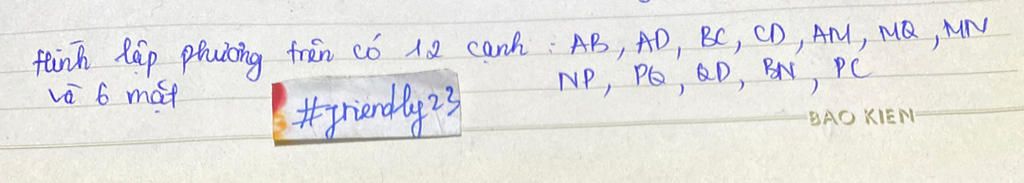 Hình lập phương trên có 12 cạnh : AB, AD, BC, CD, AM, MQ, MN
NP, PQ, QD, BN, PC
và 6 mặt
#friendly23
BAO KIEN